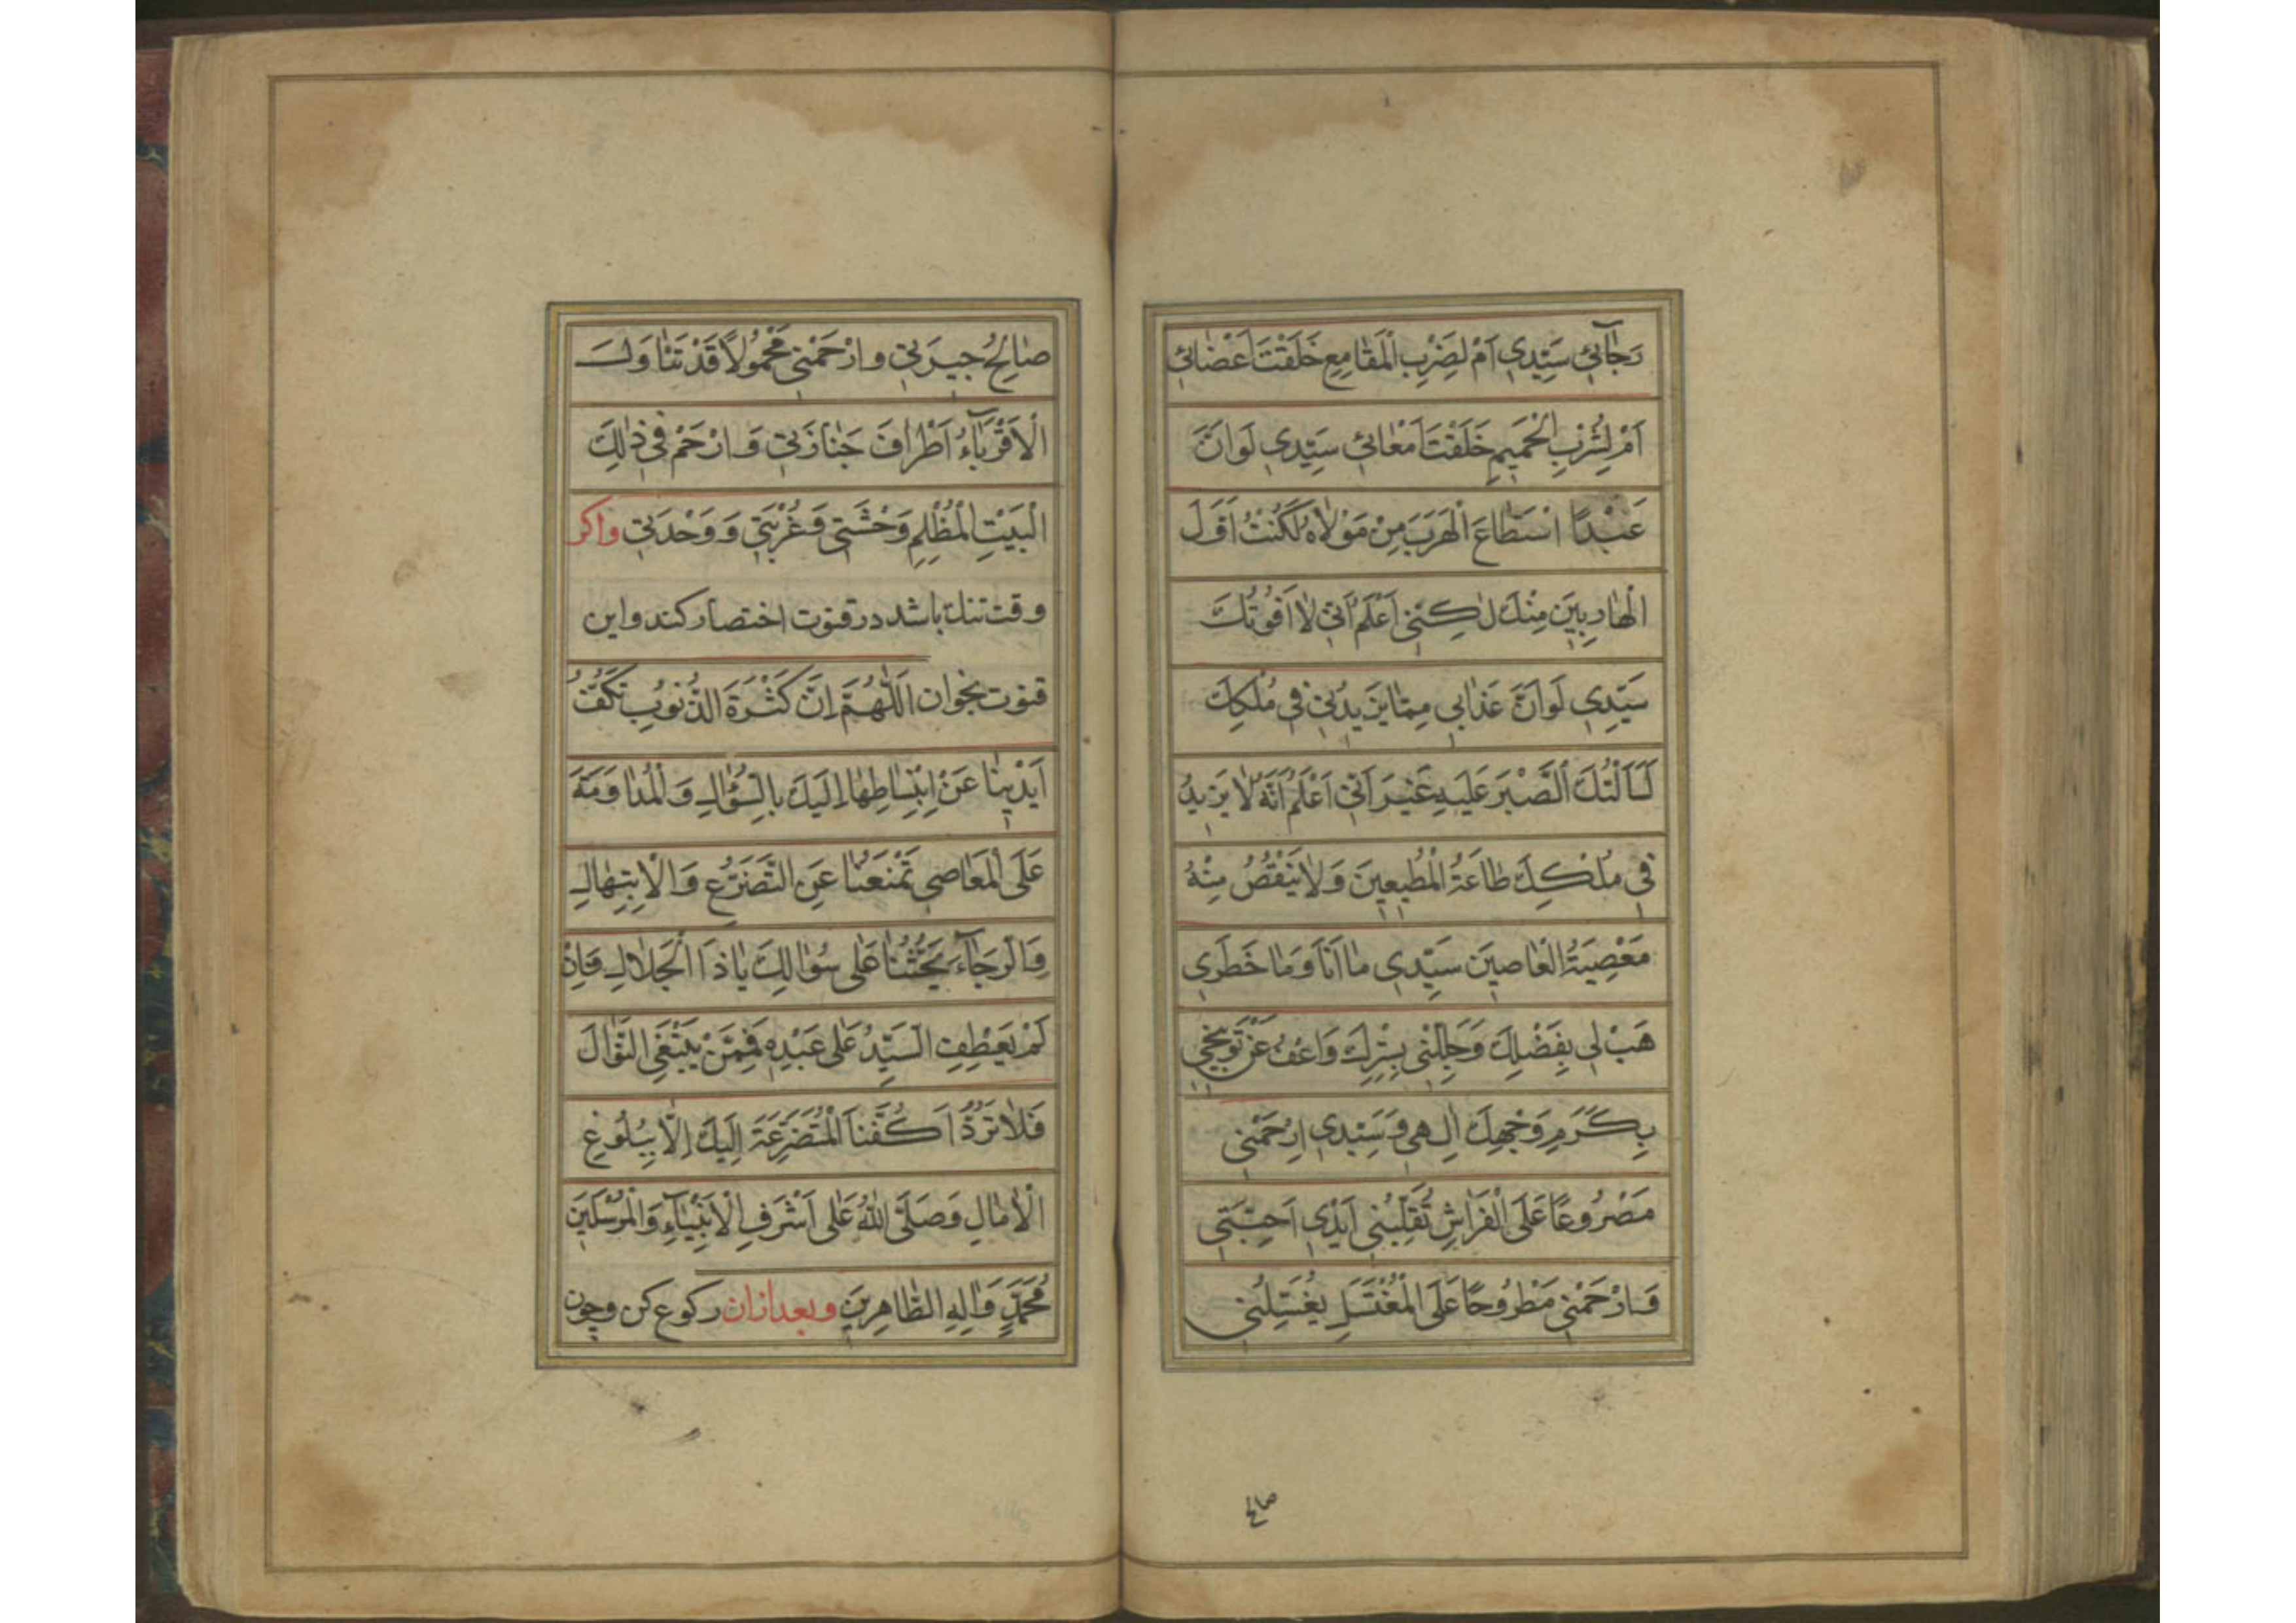 رَجٰآئِي سَيِّدِي اَمْ لِضَرْبِ الْمَقٰامِعِ خَلَقْتَ اَعْضٰائِي
اَمْ لِشُرْبِ الْحَمِيمِ خَلَقْتَ اَمْعٰائِي سَيِّدِي لَوْ اَنَّ
عَبْدًا اسْتَطٰاعَ الْهَرَبَ مِنْ مَوْلٰاهُ لَكُنْتُ اَوَّلَ
الْهٰارِبِينَ مِنْكَ لٰكِنِّي اَعْلَمُ اَنِّي لٰا اَفُوتُكَ
سَيِّدِي لَوْ اَنَّ عَذٰابِي مِمّٰا يَزِيدُنِي فِي مُلْكِكَ
لَسَاَلْتُكَ الصَّبْرَ عَلَيْهِ غَيْرَ اَنِّي اَعْلَمُ اَنَّهُ لٰا يَزِيدُ
فِي مُلْكِكَ طٰاعَةُ الْمُطِيعِينَ وَلٰا يَنْقُصُ مِنْهُ
مَعْصِيَةُ الْعٰاصِينَ سَيِّدِي مٰا اَنَا وَمٰا خَطَرِي
هَبْ لِي بِفَضْلِكَ وَجَلِّلْنِي بِسِتْرِكَ وَاعْفُ عَنْ تَوْبِيخِي
بِكَرَمِ وَجْهِكَ اِلٰهِي وَسَيِّدِي ارْحَمْنِي
مَصْرُوعًا عَلَى الْفِرٰاشِ تُقَلِّبُنِي اَيْدِي اَحِبَّتِي
وَارْحَمْنِي مَطْرُوحًا عَلَى الْمُغْتَسَلِ يُغَسِّلُنِي
صالح
صٰالِحُ جِيرَتِي وَارْحَمْنِي مَحْمُولًا قَدْ تَنٰاوَلَ
الْاَقْرِبٰآءُ اَطْرٰافَ جَنٰازَتِي وَارْحَمْ فِي ذٰلِكَ
الْبَيْتِ الْمُظْلِمِ وَحْشَتِي وَغُرْبَتِي وَوَحْدَتِي واکر
وقت تنک باشد در قنوت اختصار کند و این
قنوت بخوان اَللّٰهُمَّ اِنَّ كَثْرَةَ الذُّنُوبِ تَكُفُّ
اَيْدِيَنٰا عَنْ اِنْبِسٰاطِهٰا اِلَيْكَ بِالسُّؤٰالِ وَالْمُدٰاوَمَةَ
عَلَى الْمَعٰاصِي تَمْنَعُنٰا عَنِ التَّضَرُّعِ وَالْاِبْتِهٰالِ
وَالرَّجٰآءَ يَحُثُّنٰا عَلٰى سُؤٰالِكَ يٰا ذَا الْجَلٰالِ فَاِنْ
لَمْ يَعْطِفِ السَّيِّدُ عَلٰى عَبْدِهِ فَمِمَّنْ يَبْتَغِي النَّوٰالَ
فَلٰا تَرُدَّ اَكُفَّنَا الْمُتَضَرِّعَةَ اِلَيْكَ اِلّٰا بِبُلُوغِ
الْاٰمٰالِ وَصَلَّى اللّٰهُ عَلٰى اَشْرَفِ الْاَنْبِيٰآءِ وَالْمُرْسَلِينَ
مُحَمَّدٍ وَاٰلِهِ الطّٰاهِرِينَ وبعد ازان رکوع کن و چون